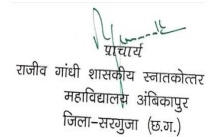 प्राचार्य
राजीव गांधी शासकीय स्नातकोत्तर
महाविद्यालय अंबिकापुर
जिला-सरगुजा (छ.ग.)